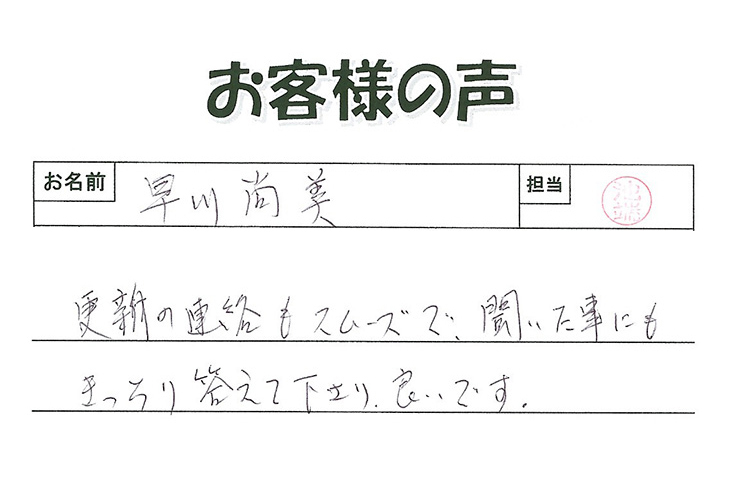 お客様の声
お名前 早川尚美 担当
更新の連絡もスムーズで、聞いた事にも
きっちり答えて下さり、良いです。